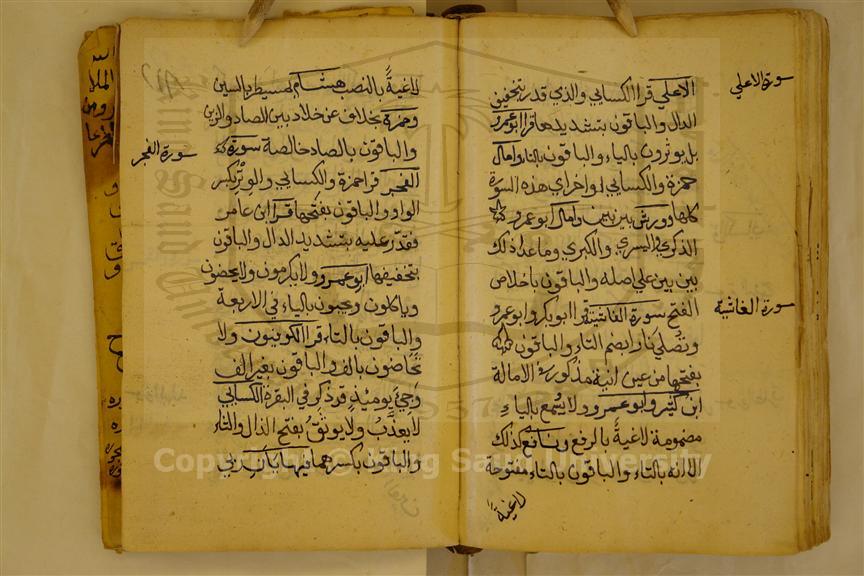 سورة الاعلي
الاعلي قرا الكسايي والذي قدر بتخفيف
الدال والباقون بتشديدها قرا ابو عمرو
بل يوثرون بالياء والباقون بالتاء وامال
حمزة والكسايي اواخر اي هذه السورة
كلها وورش بين بين وامال ابو عمرو
الذكري واليسري والكبري وماعدا ذلك
بين بين علي اصله والباقون باخلاص
سورة الغاشية
الفتح سورة الغاشية قرا ابو بكر وابو عمرو
وتصلي نارا بضم التاء والباقون
بفتحها من عين انية مذكور في الامالة
ابن كثير وابو عمرو ولا يسمع بالياء
مضمومة لاغية بالرفع ونافع كذلك
الا انه بالتاء والباقون بالتاء مفتوحة
لاغية
لاغيةً بالنصب هشام لمسيطر بالسين
وحمزة بخلاف عن خلاد بين الصاد والزين
والباقون بالصاد خالصة سورة
سورة الفجر
الفجر قرا حمزة والكسايي والوتر بكسر
الواو والباقون بفتحها قرا ابن عامر
فقدّر عليه بتشديد الدال والباقون
بتخفيفها ابو عمرو ولا يكرمون ولا يحضون
وياكلون ويحبون بالياء في الاربعة
والباقون بالتاء قرا الكوفيون ولا
تحاضون بالف والباقون بغير الف
وجيء يومئذ قد ذكر في البقرة الكسايي
لا يعذب ولا يوثق بفتح الذال والثاء
والباقون بكسرهما فيها ياان ربي
Copyright © King Saud University
1957